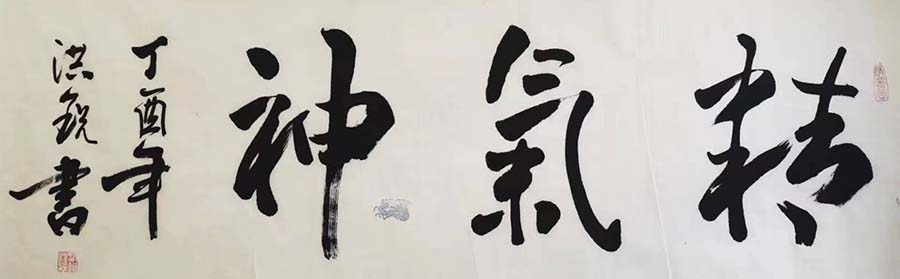 精氣神
丁酉年
洪銳書